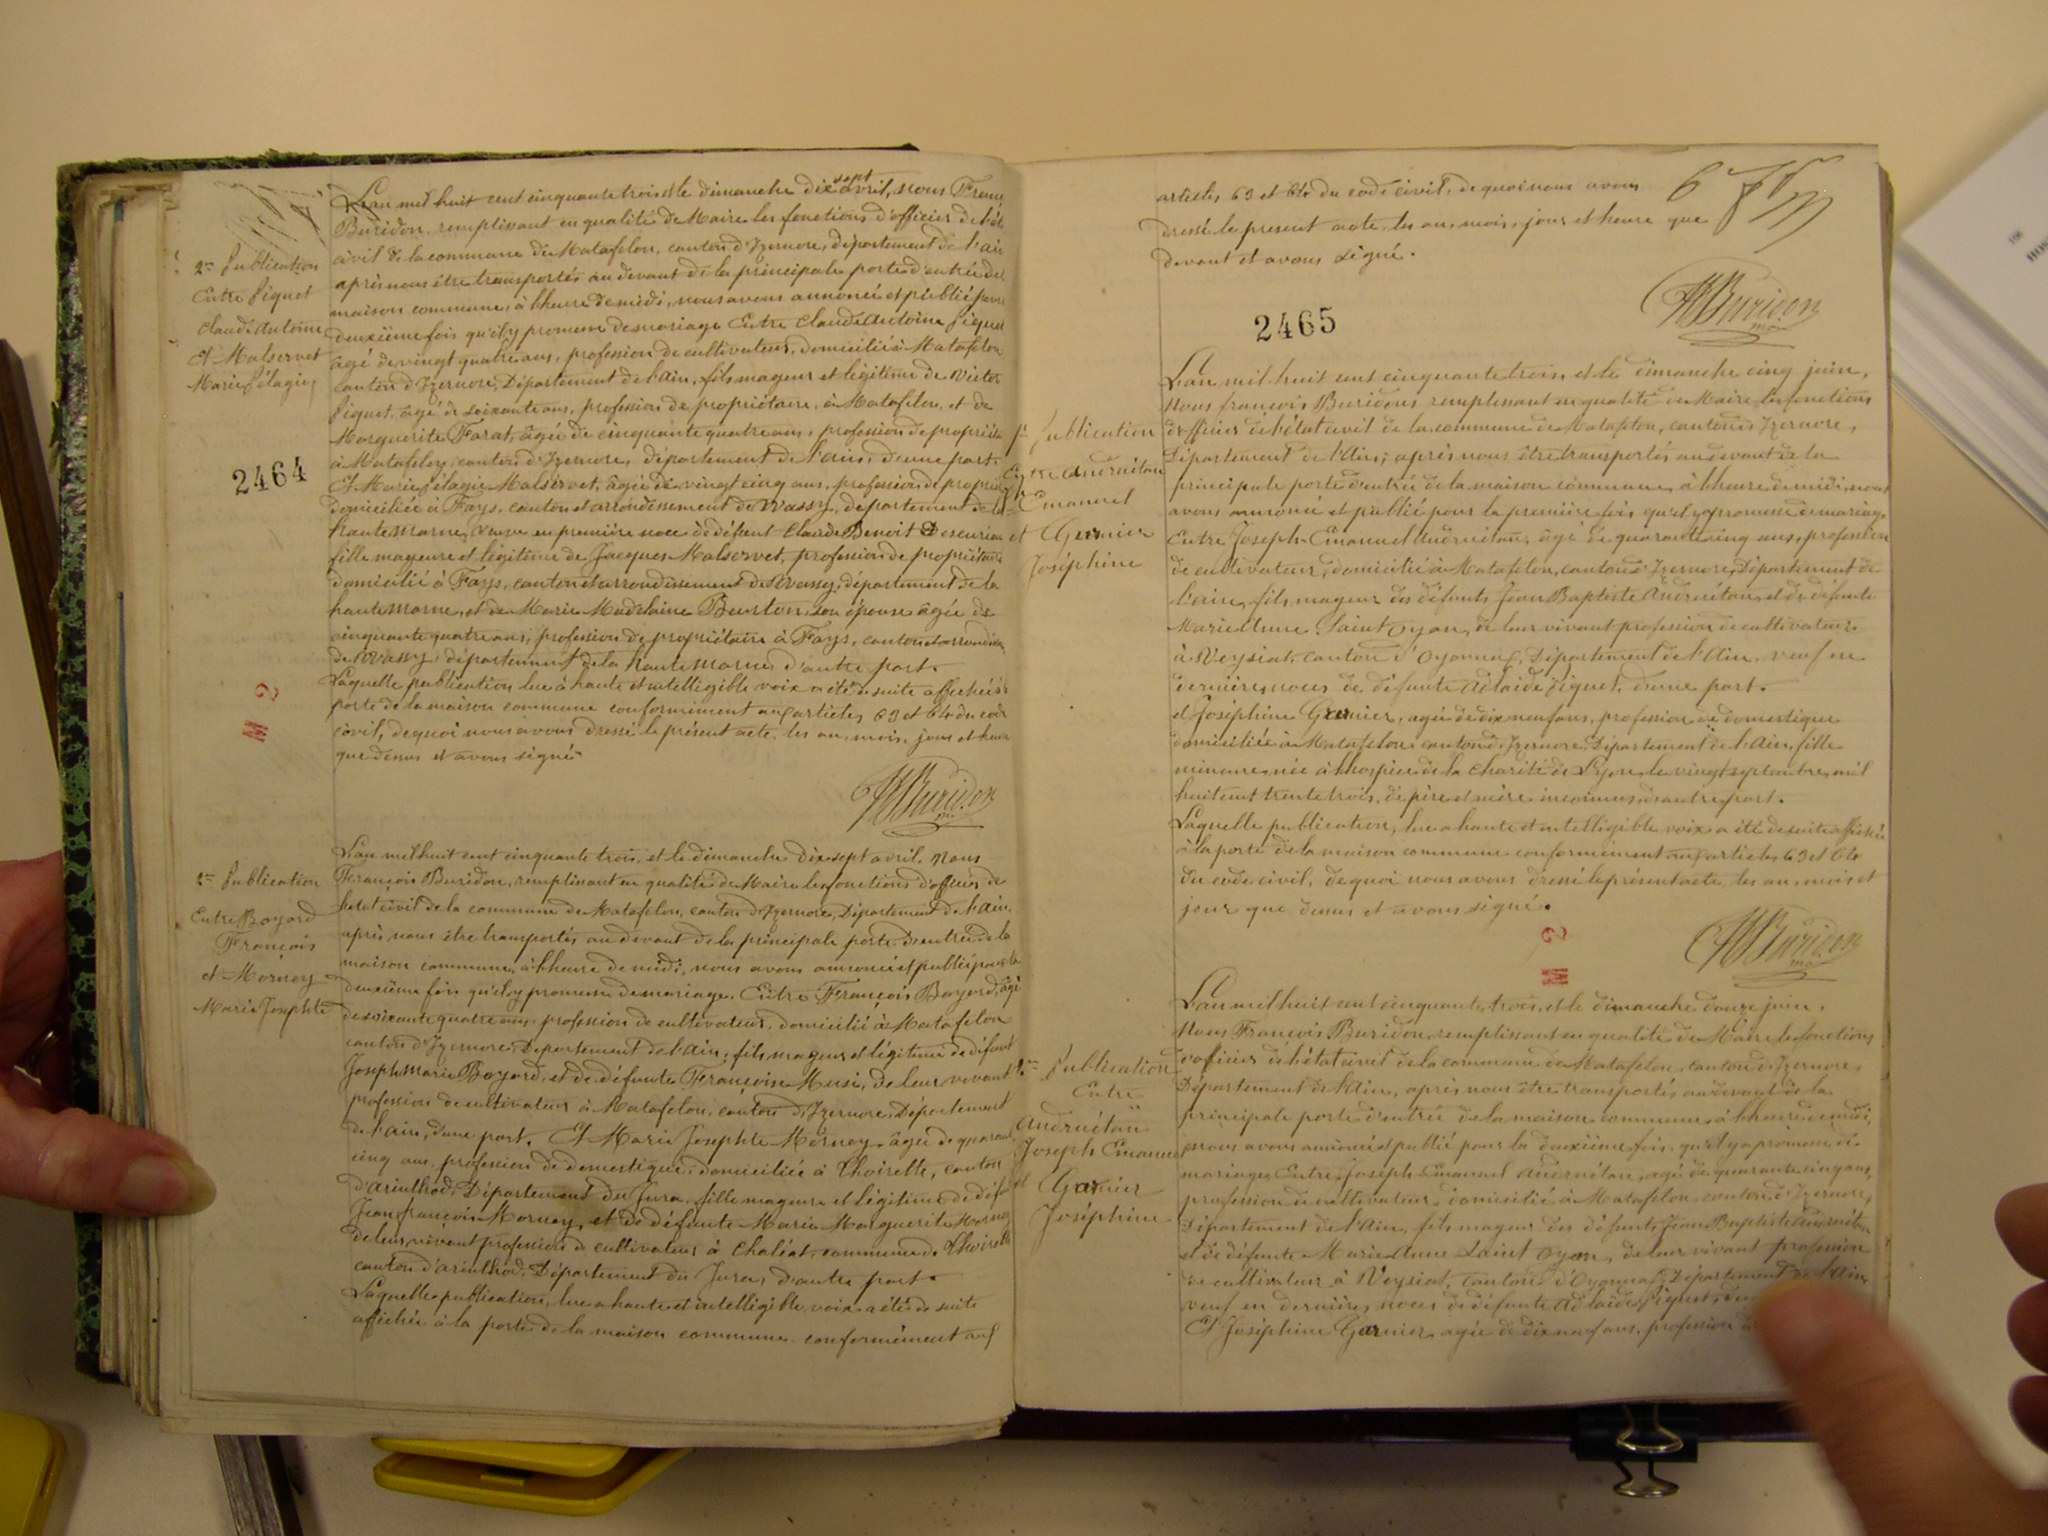 L'an mil huit cent cinquante trois et le dimanche dix sept avril, nous Franç
Buridon, remplissant en qualité de Maire les fonctions d'officier de l'ét
civil de la commune de Matafelon, canton d'Izernore, département de l'ain
après nous être transportés au devant de la principale porte d'entrée de la
maison commune, à l'heure de midi, nous avons annoncé et publié pour
deuxième fois qu'il y promesse de mariage Entre Claude Antoine Piquet
âgé de vingt quatre ans, profession de cultivateur, domicilié à Matafelon
canton d'Izernore, Département de l'ain, fils majeur et légitime de Victor
Piquet, âgé de soixante ans, profession de propriétaire, à Matafelon, et de
Marguerite Farat, âgée de cinquante quatre ans, profession de propriét
à Matafelon, canton d'Izernore, département de l'ain, d'une part.
Et Marie Pélagie Malservet, âgée de vingt cinq ans, profession de propriét
domiciliée à Fays, canton et arrondissement de Wassy, département de la
haute marne, veuve en première noce de défunt Claude Benoit
fille majeure et légitime de Jacques Malservet, profession de propriétaire
domicilié à Fays, canton et arrondissement de Wassy, département de la
haute marne, et de Marie Madelaine Burton, son épouse âgée de
cinquante quatre ans, profession de propriétaire à Fays, canton et arrondiss
de Wassy, département de la haute marne, d'autre part.
Laquelle publication lue à haute et intelligible voix a été de suite affichée à
porte de la maison commune conformément aux articles 63 et 64 du code
civil, de quoi nous avons dressé le présent acte les an, mois, jour et heure
que dessus et avons signé
F Buridon
2me Publication
Entre Piquet
Claude Antoine
Et Malservet
Marie Pélagie
2464
L'an mil huit cent cinquante trois, et le dimanche dix sept avril, Nous
François Buridon, remplissant en qualité de Maire les fonctions d'officier de
l'etat civil de la commune de Matafelon, canton d'Izernore, Département de l'ain,
après nous être transportés au devant de la principale porte d'entrée de la
maison commune, à l'heure de midi, nous avons annoncé et publié pour la
deuxième fois qu'il y promesse de mariage. Entre François Bayard, âgé
de soixante quatre ans, profession de cultivateur, domicilié à Matafelon
canton d'Izernore, Département de l'ain, fils majeur et légitime de défunt
Joseph Marie Bayard, et de défunte Françoise Musi, de leur vivant
profession de cultivateur à Matafelon, canton d'Izernore, Département
de l'ain, d'une part. Et Marie Josephte Mornay âgée de quarante
cinq ans, profession de domestique, domiciliée à Thoirette, canton
d'arinthod, Département du Jura, fille majeure et légitime de déf
Jean françois Mornay, et de défunte Marie Marguerite Mornay
de leur vivant profession de cultivateur à Chaléat, commune de Thoirette
canton d'arinthod, Département du Jura, d'autre part.
Laquelle publication, lue a haute et intelligible voix a été de suite
affichée à la porte de la maison commune conformément aux
2me Publication
Entre Bayard
François
et Mornay
Marie Josephte
articles 63 et 64 du code civil, de quoi nous avons
dressé le present acte les an, mois, jour et heure que
devant et avons signé.
F Buridon
2465
L'an mil huit cent cinquante trois, et le dimanche cinq juin,
Nous françois Buridon, remplissant en qualité de Maire les fonctions
d'officier de l'état civil de la commune de Matafelon, canton d'Izernore,
Département de l'Ain, après nous être transportés au devant de la
principale porte d'entrée de la maison commune, à l'heure de midi, nous
avons annoncé et publié pour la première fois qu'il y a promesse de mariage
Entre Joseph Emanuel Andruétan, âgé de quarante cinq ans, profession
de cultivateur, domicilié à Matafelon, canton d'Izernore, Département de
l'ain, fils majeur des défunts Jean Baptiste Andruétan, et de défunte
Marie Anne Saint Oyan, de leur vivant profession de cultivateur
à Veysiat, canton d'Oyonnax, Département de l'Ain, veuf en
dernières noces de défunte Adlaïde Piquet, d'une part.
et Joséphine Garnier, agée de dix neuf ans, profession de domestique
domiciliée à Matafelon canton d'Izernore, Département de l'Ain, fille
mineure, née à l'hospice de la Charité de Lyon, le vingt septembre mil
huit cent trente trois, de père et mère inconnus, d'autre part.
Laquelle publication, lue a haute et intelligible voix a été de suite affichée
à la porte de la maison commune conformément aux articles 63 et 64
du code civil, de quoi nous avons dressé le présent acte, les an, mois et
jour que dessus et avons signé.
F Buridon
Publication
Entre Andruétan
Emanuel
et Garnier
Joséphine
L'an mil huit cent cinquante trois, et le dimanche douze juin,
Nous François Buridon, remplissant en qualité de Maire les fonctions
d'officier de l'état civil de la commune de Matafelon, canton d'Izernore,
Département de l'Ain, après nous être transportés au devant de la
principale porte d'entrée de la maison commune, à l'heure de midi,
nous avons annoncé et publié pour la deuxième fois, qu'il y a promesse de
mariage, Entre Joseph Emanuel Andruétan, agé de quarante cinq ans,
profession de cultivateur, domicilié à Matafelon, canton d'Izernore,
Département de l'Ain, fils majeur des défunts Jean Baptiste Andruétan
et de défunte Marie Anne Saint Oyan, de leur vivant profession
de cultivateur à Veysiat, canton d'Oyonnax, Département de l'Ain,
veuf en dernières noces de défunte Adlaïde Piquet,
Et Joséphine Garnier, agée de dix neuf ans, profession de
2me Publication
Entre
Andruétan
Joseph Emanuel
et Garnier
Joséphine